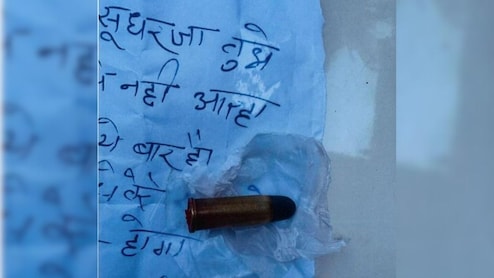 सूधरजा तुझे
नही आरहा
ये बार है
होगा